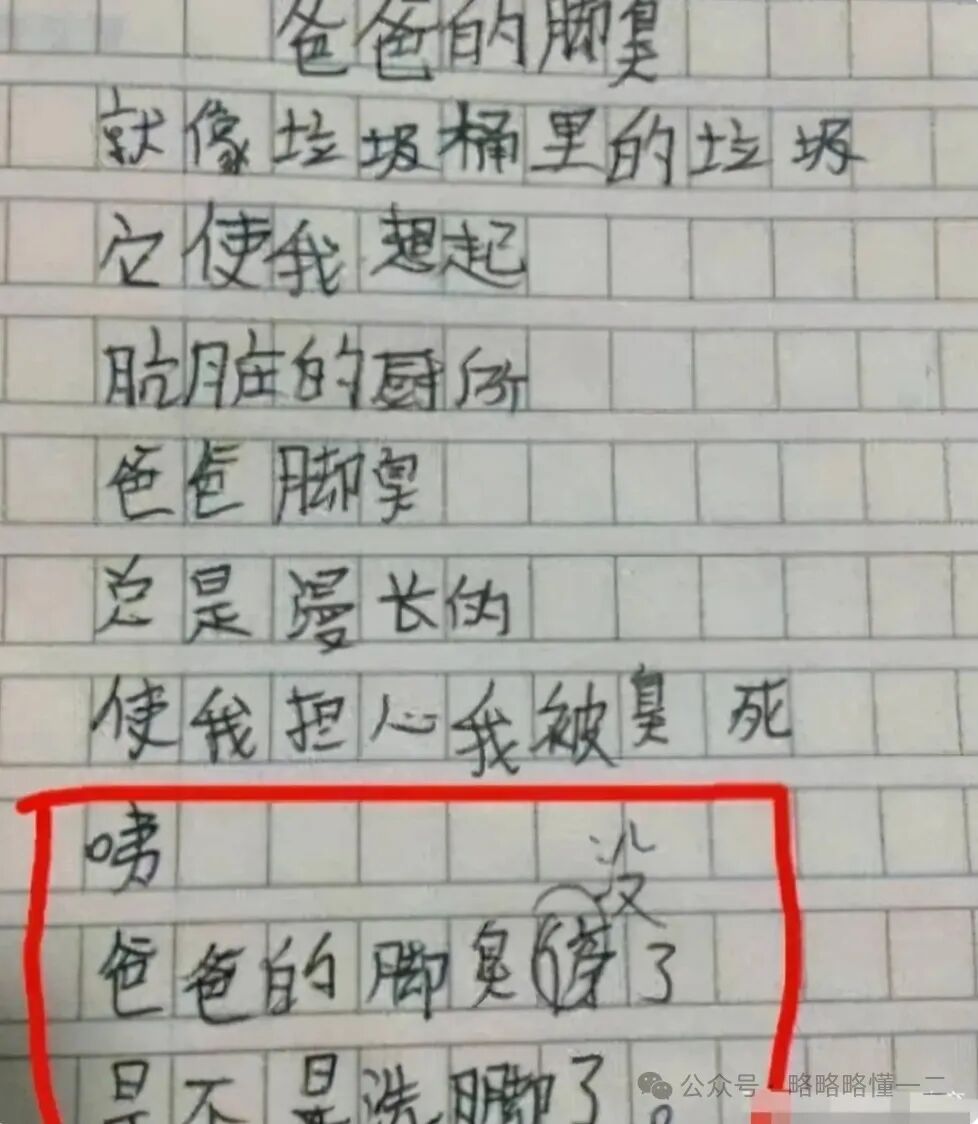 爸爸的脚臭
就像垃圾桶里的垃圾
它使我想起
肮脏的厨所
爸爸脚臭
总是漫长的
使我担心我被臭死
咦
没
爸爸的脚臭了
是不是洗脚了。
公众号·略略略懂一二